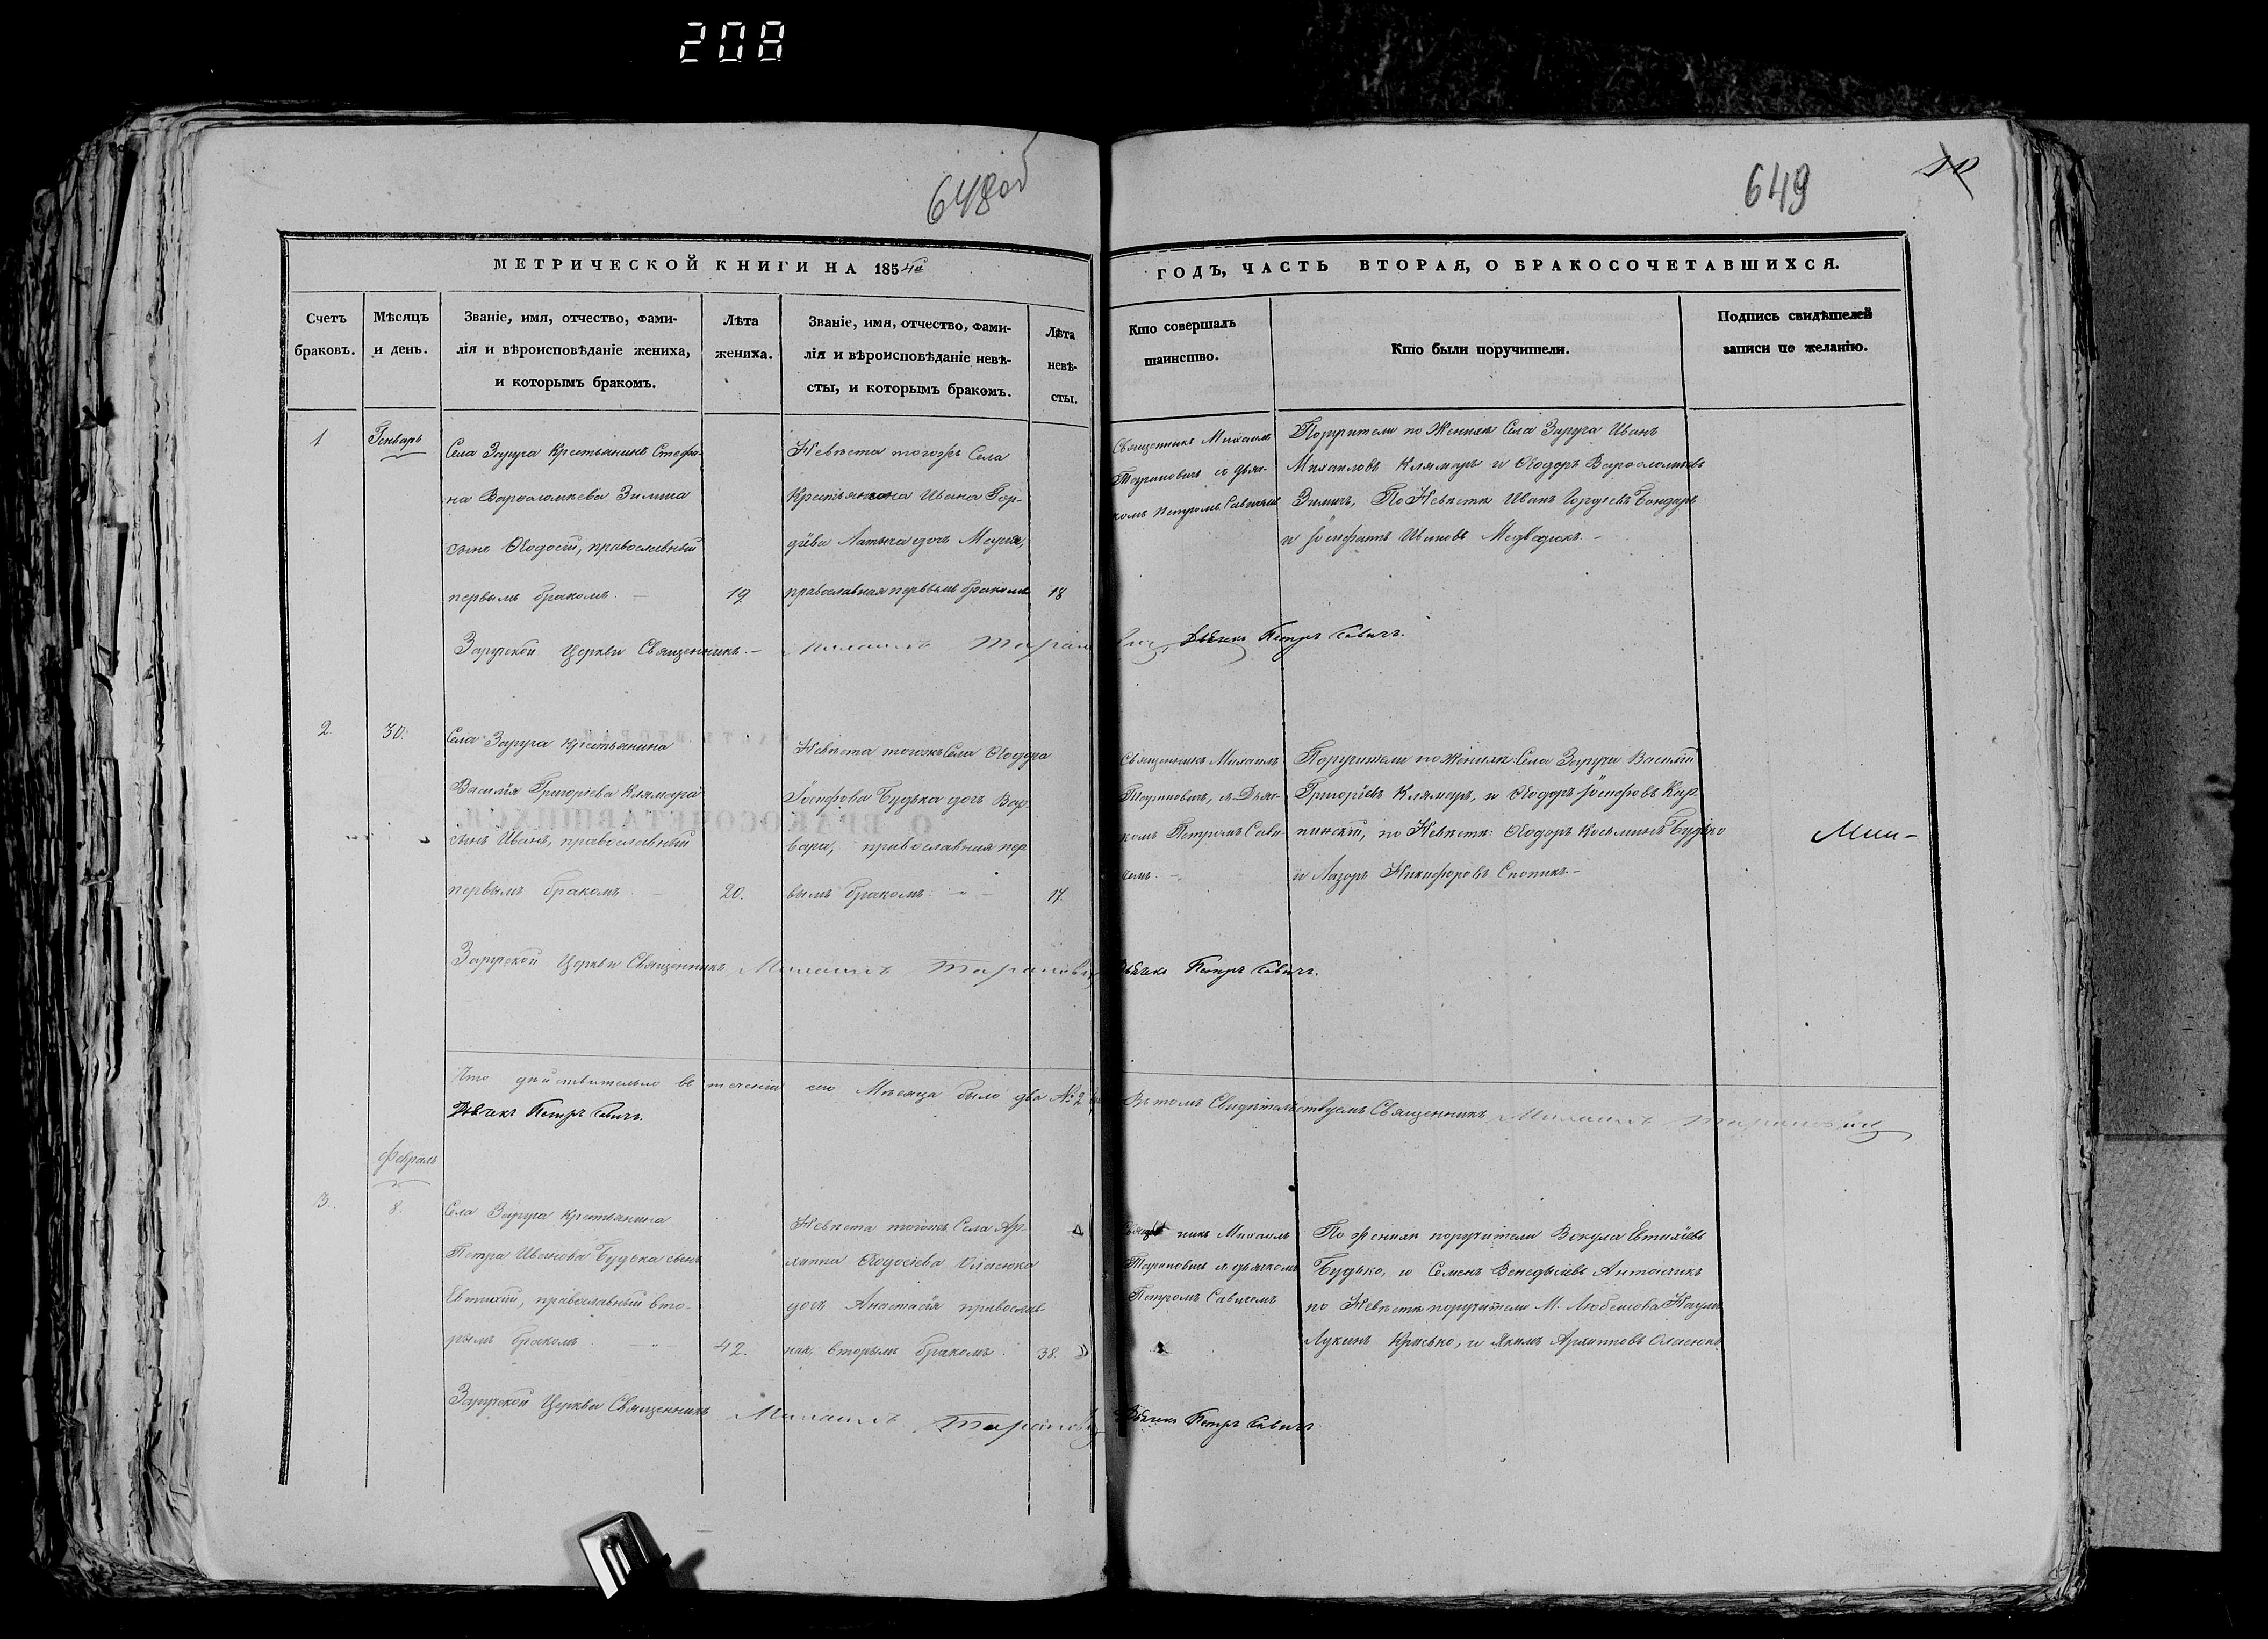 208
648об
649
МЕТРИЧЕСКОЙ КНИГИ НА 1854й
ГОДЪ, ЧАСТЬ ВТОРАЯ, О БРАКОСОЧЕТАВШИХСЯ.
Счетъ
браковъ.
Мѣсяцъ
и день.
Званіе, имя, отчество, фами-
лія и вѣроисповѣданіе жениха,
и которымъ бракомъ.
Лѣта
жениха.
Званіе, имя, отчество, фами-
лія и вѣроисповѣданіе невѣ-
сты, и которымъ бракомъ.
Лѣта
невѣ-
сты.
Кто совершалъ
таинство.
Кто были поручители.
Подпись свидѣтелей
записи по желанію.
1
Генварь
Села Заруча Крестьянина Стефа-
на Варфоломѣева Зимича
сынъ Ѳеодосій, православный
первымъ бракомъ.
19
Невѣста тогожъ Села
Крестьянина Ивана Гор-
дѣева дочь Марія,
православная первымъ бракомъ
18
Священникъ Михаилъ
Тарановичъ съ дьяч-
комъ Петромъ Савичемъ
Поручители по Женихѣ Села Заруча Иванъ
Михаиловъ Клямаръ и Ѳеодоръ Варфоломѣевъ
Зимичъ, По Невѣстѣ Иванъ Гордѣевъ Бондарь
и Іосифатъ Ивановъ Медведюкъ.
Заручской Церкви Священникъ Михаилъ Тарановичъ, Дьячекъ Петръ Савичъ.
2.
30.
Села Заруча Крестьянина
Василія Григоріева Клямара
сынъ Иванъ, православный
первымъ бракомъ
20.
Невѣста тогожъ Села Ѳеодора
Іосифова Будька дочь Вар-
вара, православная пер
вымъ бракомъ.
17.
Священникъ Михаилъ
Тарановичъ, съ Дьяч-
комъ Петромъ Сави-
чемъ.
Поручители по Женихѣ Села Заруча Василій
Григорьевъ Клямаръ, и Ѳеодоръ Іосифовъ Кар-
пинскій, по Невѣстѣ: Ѳеодоръ Косьминъ Будько
и Лазоръ Никифоровъ
Заручской Церкви Священникъ Михаилъ Тарановичъ Дьячекъ Петръ Савичъ.
Что дѣйствительно въ теченіи сего Мѣсяца было два № 2 Въ томъ Свидѣтельствуемъ Священникъ Михаилъ Тарановичъ
Дьячекъ Петръ Савичъ.
Февраль
3.
8.
Села Заруча Крестьянина
Петра Иванова Будька сынъ
Евтихій, православный вто-
рымъ бракомъ
42.
Невѣста тогожъ Села Ар-
хиппа Ѳеодосіева
дочь Анастасія православ-
ная, вторымъ бракомъ.
38.
никъ Михаилъ
Тарановичъ съ дьячкомъ
Петромъ Савичемъ
По Женихѣ поручители Вокула Евтихіевъ
Будько, и Семенъ Антончикъ
по Невѣстѣ поручители М. Любешова Наумъ
Лукинъ и Якимъ Архипповъ
Заручской Церкви Священникъ Михаилъ Тарановичъ Дьячекъ Петръ Савичъ